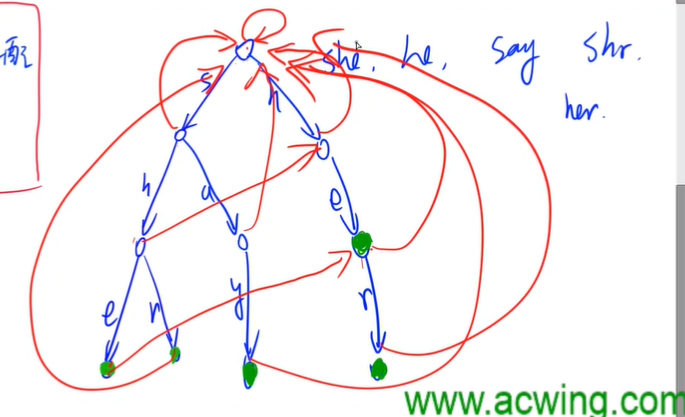 配
she, he, say shr.
her.
s
h
h
a
e
e
r
y
r
www.acwing.com